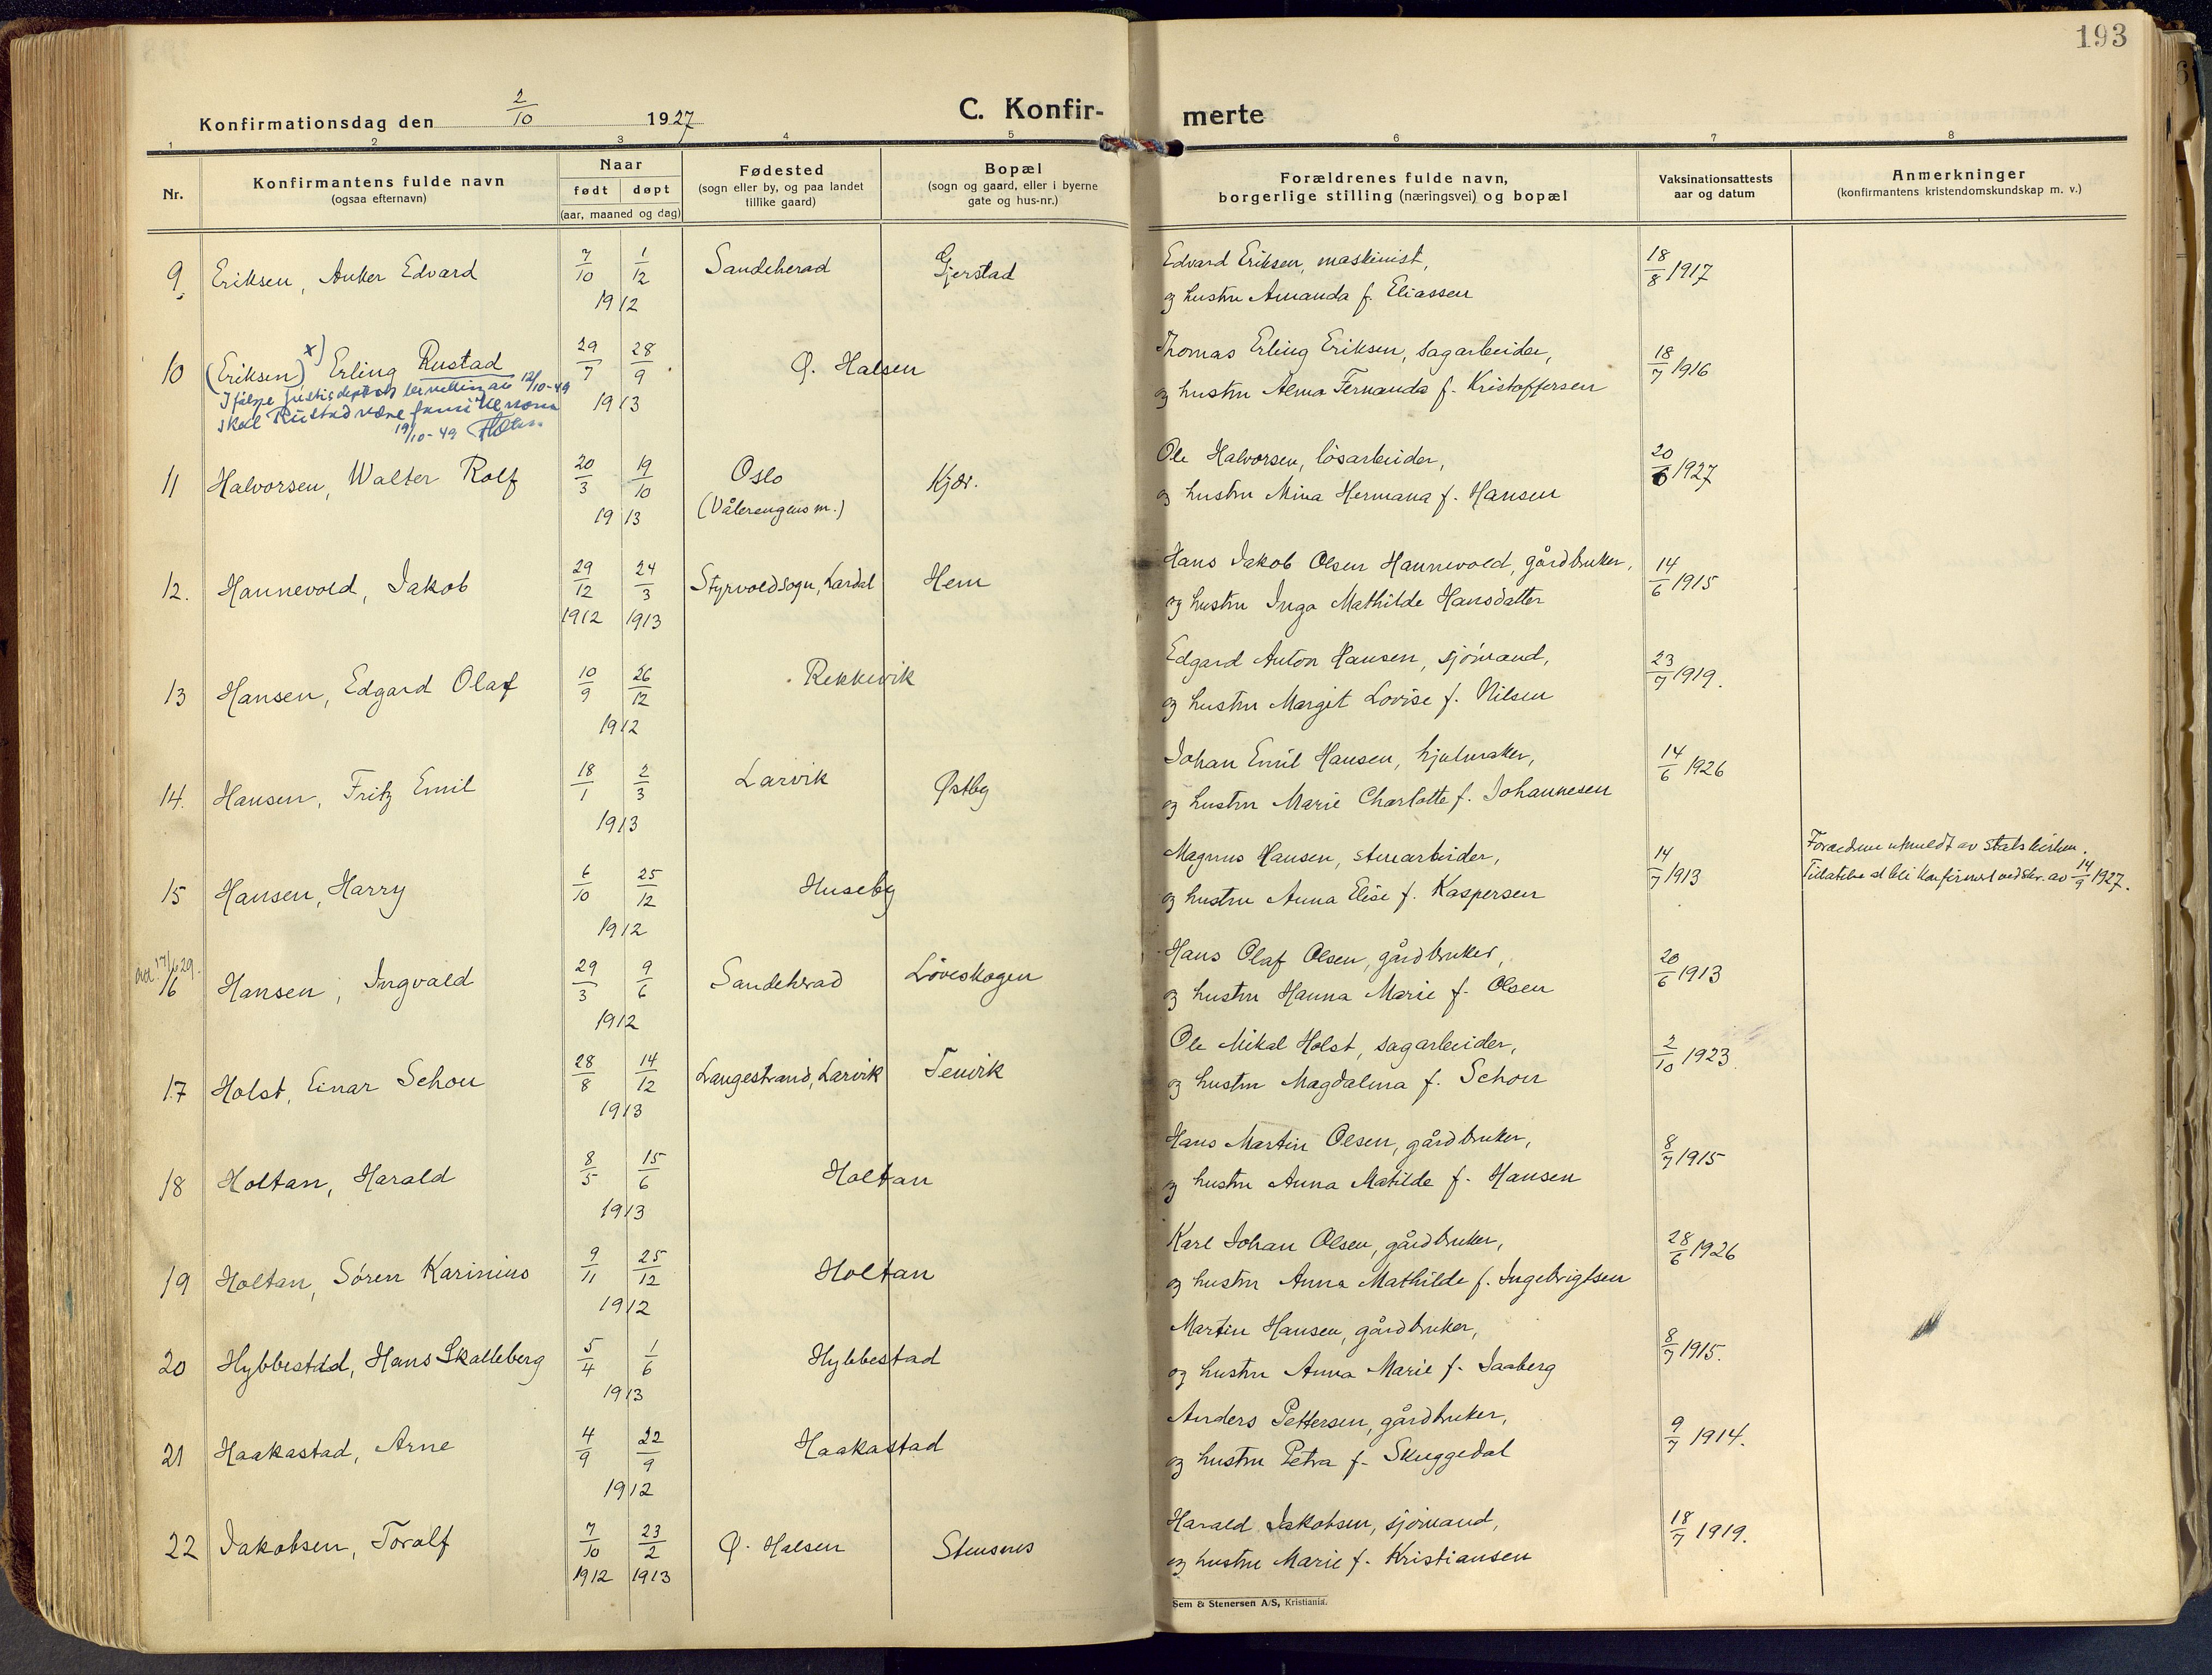 193
Konfirmationsdag den 2/10 1927
C. Konfir-
merte
1 2 3 4 5 6 7 8
Nr.
Konfirmantens fulde navn
(ogsaa efternavn)
Naar
født døpt
(aar, maaned og dag)
Fødested
(sogn eller by, og paa landet
tillike gaard)
Bopæl
(sogn og gaard, eller i byerne
gate og hus-nr.)
Forældrenes fulde navn,
borgerlige stilling (næringsvei) og bopæl
Vaksinationsattests
aar og datum
Anmerkninger
(konfirmantens kristendomskundskap m. v.)
9. Eriksen, Anker Edvard 7/10 1/12 1912 Sandeherad Gjerstad
Edvard Eriksen, maskinist, 18/8 1917
og hustru Amanda f. Eliassen
10 (Eriksen) x) Erling Rustad 29/7 28/9 1913 Ø. Halsen
I følge justisdept.s bevilling av 12/10-49
skal Rustad være familienavn
19/10-49
Thomas Erling Eriksen, sagarbeider, 18/7 1916
og hustru Alma Fernanda f. Kristoffersen
11 Halvorsen, Walter Rolf 20/3 19/10 1913 Oslo Kjær.
(Vålerengens m.)
Ole Halvorsen, løsarbeider, 20/6 1927
og hustru Mina Hermana f. Hansen
12. Hannevold, Jakob 29/12 1912 24/3 1913 Styrvoldsogn, Lardal Hem
Hans Jakob Olsen Hannevold, gårdbruker, 14/6 1915
og hustru Inga Mathilde Hansdatter
13 Hansen, Edgard Olaf 10/9 26/12 1912 Rekkevik
Edgard Anton Hansen, sjømand, 23/7 1919.
og hustru Margit Lovise f. Nilsen
14. Hansen, Fritz Emil 18/1 2/3 1913 Larvik Østby
Johan Emil Hansen, hjulmaker, 14/6 1926
og hustru Marie Charlotte f. Johannesen
15 Hansen, Harry 6/10 25/12 1912 Huseby
Magnus Hansen, stenarbeider, 14/7 1913
og hustru Anna Elise f. Kaspersen
Forældrene utmeldt av statskirken.
Tillatelse at bli konfirmert ved skr. av 14/9 1927.
17/6 29.
16 Hansen, Ingvald 29/3 9/6 1912 Sandeherad Løveskogen
Hans Olaf Olsen, gårdbruker, 20/6 1913
og hustru Hanna Marie f. Olsen
17 Holst, Einar Schou 28/8 14/12 1913 Langestrand, Larvik Tenvik
Ole Mikal Holst, sagarbeider, 2/10 1923
og hustru Magdalena f. Schou
18 Holtan, Harald 8/5 15/6 1913 Holtan
Hans Martin Olsen, gårdbruker, 8/7 1915
og hustru Anna Matilde f. Hansen
19 Holtan, Søren Karinius 9/11 25/12 1912 Holtan
Karl Johan Olsen, gårdbruker, 28/6 1926
og hustru Anna Mathilde f. Ingebrigtsen
20 Hybbestad, Hans Skalleberg 5/4 1/6 1913 Hybbestad
Martin Hansen, gårdbruker, 8/7 1915.
og hustru Anna Marie f. Jaaberg
21 Haakastad, Arne 4/9 22/9 1912 Haakastad
Anders Pettersen, gårdbruker, 9/7 1914.
og hustru Petra f. Skuggedal
22 Jakobsen, Toralf 7/10 1912 23/2 1913 Ø. Halsen Stensnes
Harald Jakobsen, sjømand, 18/7 1919.
og hustru Marie f. Kristiansen
Sem & Stenersen A/S, Kristiania.